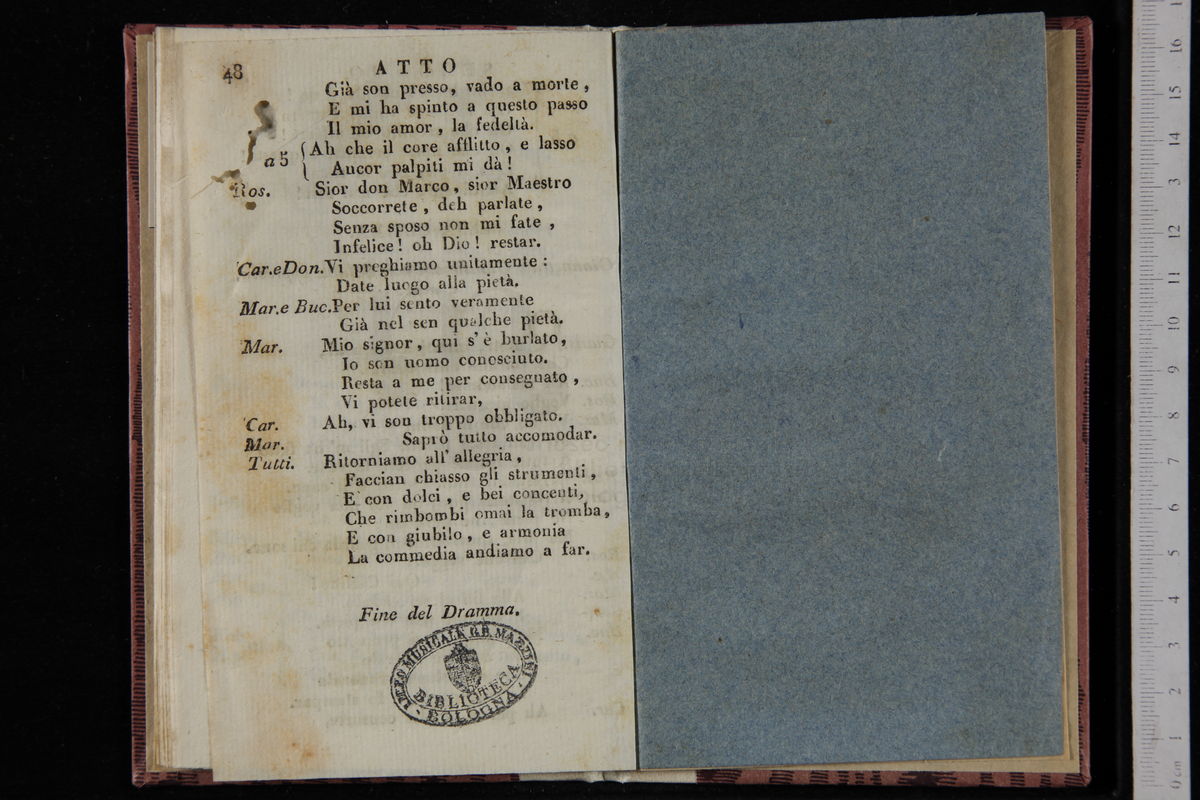 48
ATTO
Già son presso, vado a morte,
E mi ha spinto a questo passo
Il mio amor, la fedeltà.
a 5 Ah che il core afflitto, e lasso
Ancor palpiti mi dà!
Ros. Sior don Marco, sior Maestro
Soccorrete, deh parlate,
Senza sposo non mi fate,
Infelice! oh Dio! restar.
Car. e Don. Vi preghiamo unitamente:
Date luogo alla pietà.
Mar. e Buc. Per lui sento veramente
Già nel sen qualche pietà.
Mar. Mio signor, qui s'è burlato,
Io son uomo conosciuto.
Resta a me per consegnato,
Vi potete ritirar,
Car. Ah, vi son troppo obbligato.
Mar. Saprò tutto accomodar.
Tutti. Ritorniamo all'allegria,
Faccian chiasso gli strumenti,
E con dolci, e bei concenti,
Che rimbombi omai la tromba,
E con giubilo, e armonia
La commedia andiamo a far.
Fine del Dramma.
LICEO MUSICALE G.B. MARTINI
BIBLIOTECA
BOLOGNA
16
15
14
13
12
11
10
9
8
7
6
5
4
3
2
1
0 cm